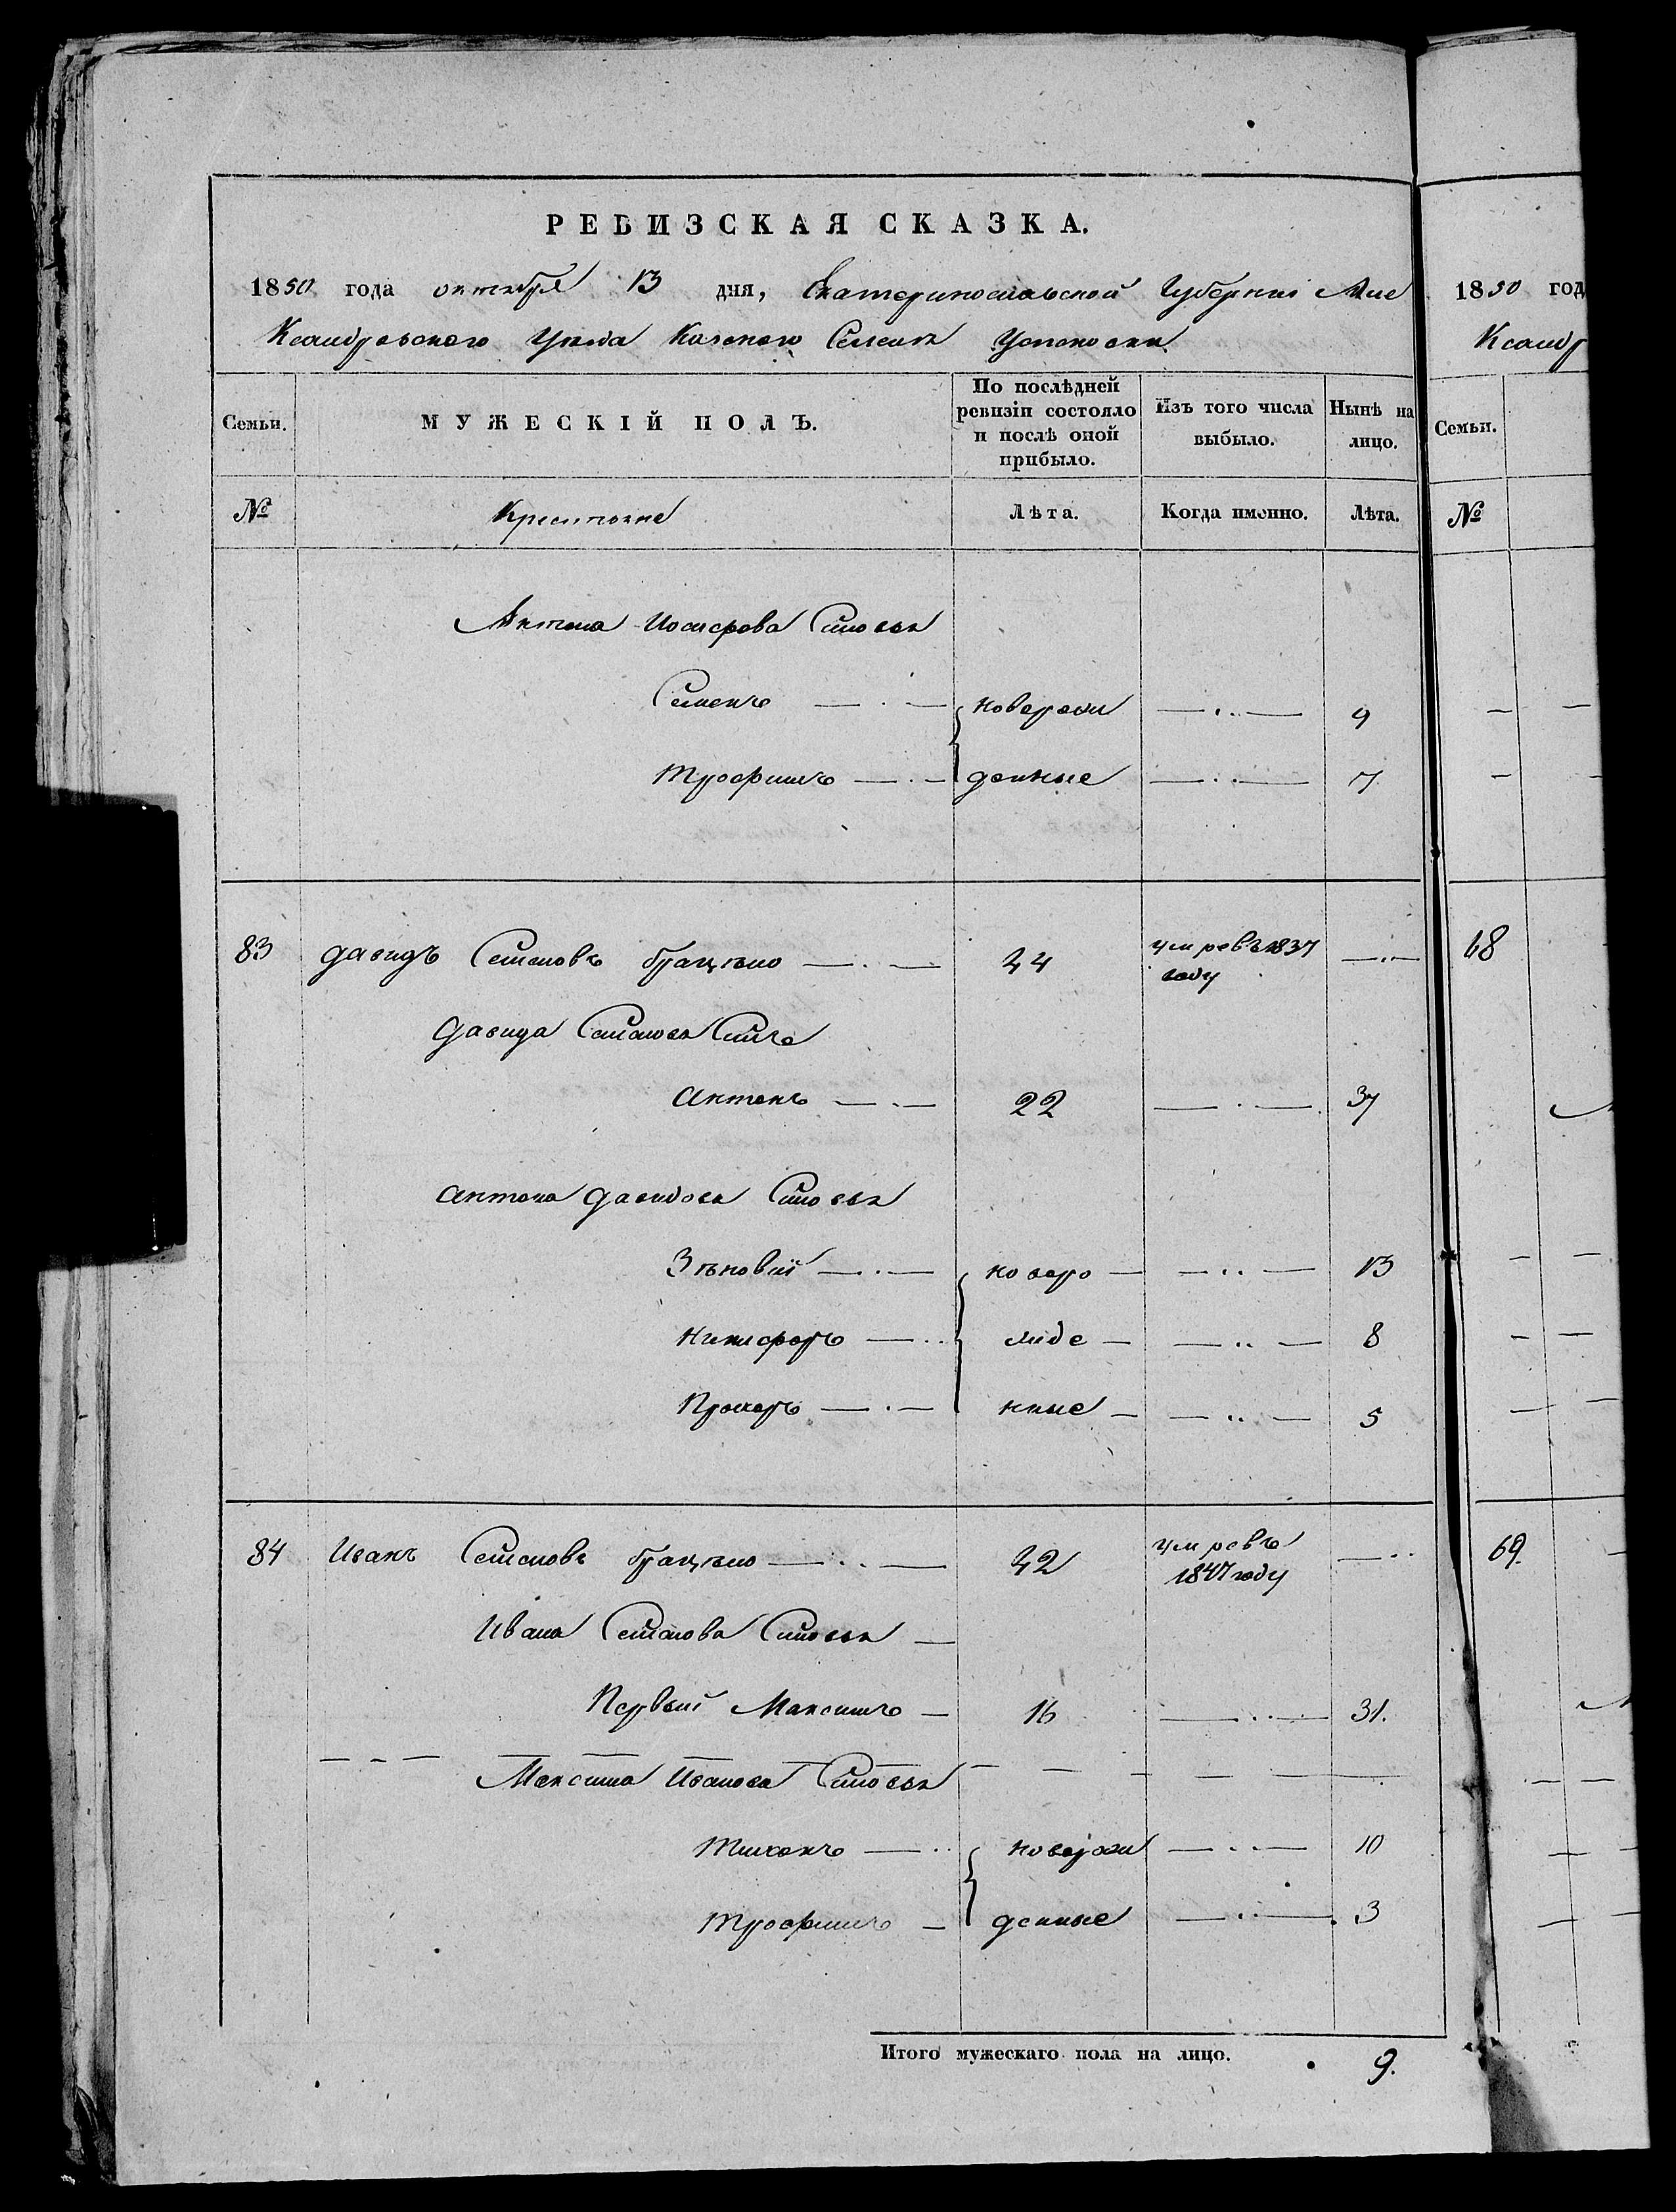 РЕВИЗСКАЯ СКАЗКА.
1850 года октября 13 дня, Екатеринославской Губернии Але
Ксандровского Уѣзда Казеного Селенія Успеновки
Семьи. МУЖЕСКІЙ ПОЛЪ. По послѣдней ревизіи состояло и послѣ оной прибыло. Изъ того числа выбыло. Нынѣ на лицо.
№ Крестьяне Лѣта. Когда именно. Лѣта.
Антона Сыновья
Семенъ — новорож — 9
Трофимъ — денные — 7
83 Давидъ Семеновъ — 44 умревъ 1837 году —
Давида Семенова Сынъ
Антонъ — 22 — 37
Антона Давидова Сыновья
Зѣновій — новоро — 13
Никифоръ — жде — 8
Прохоръ — нные — 5
84 Иванъ Семеновъ — 42 умревъ 1847 году —
Ивана Семенова Сыновья —
Первый Максимъ — 16 — 31.
Максима Иванова Сыновья
Тихонъ — новорож — 10
Трофимъ — денные — 3
Итого мужескаго пола на лицо. 9.
1850 год
Ксандр
Семьи.
№
68
69.